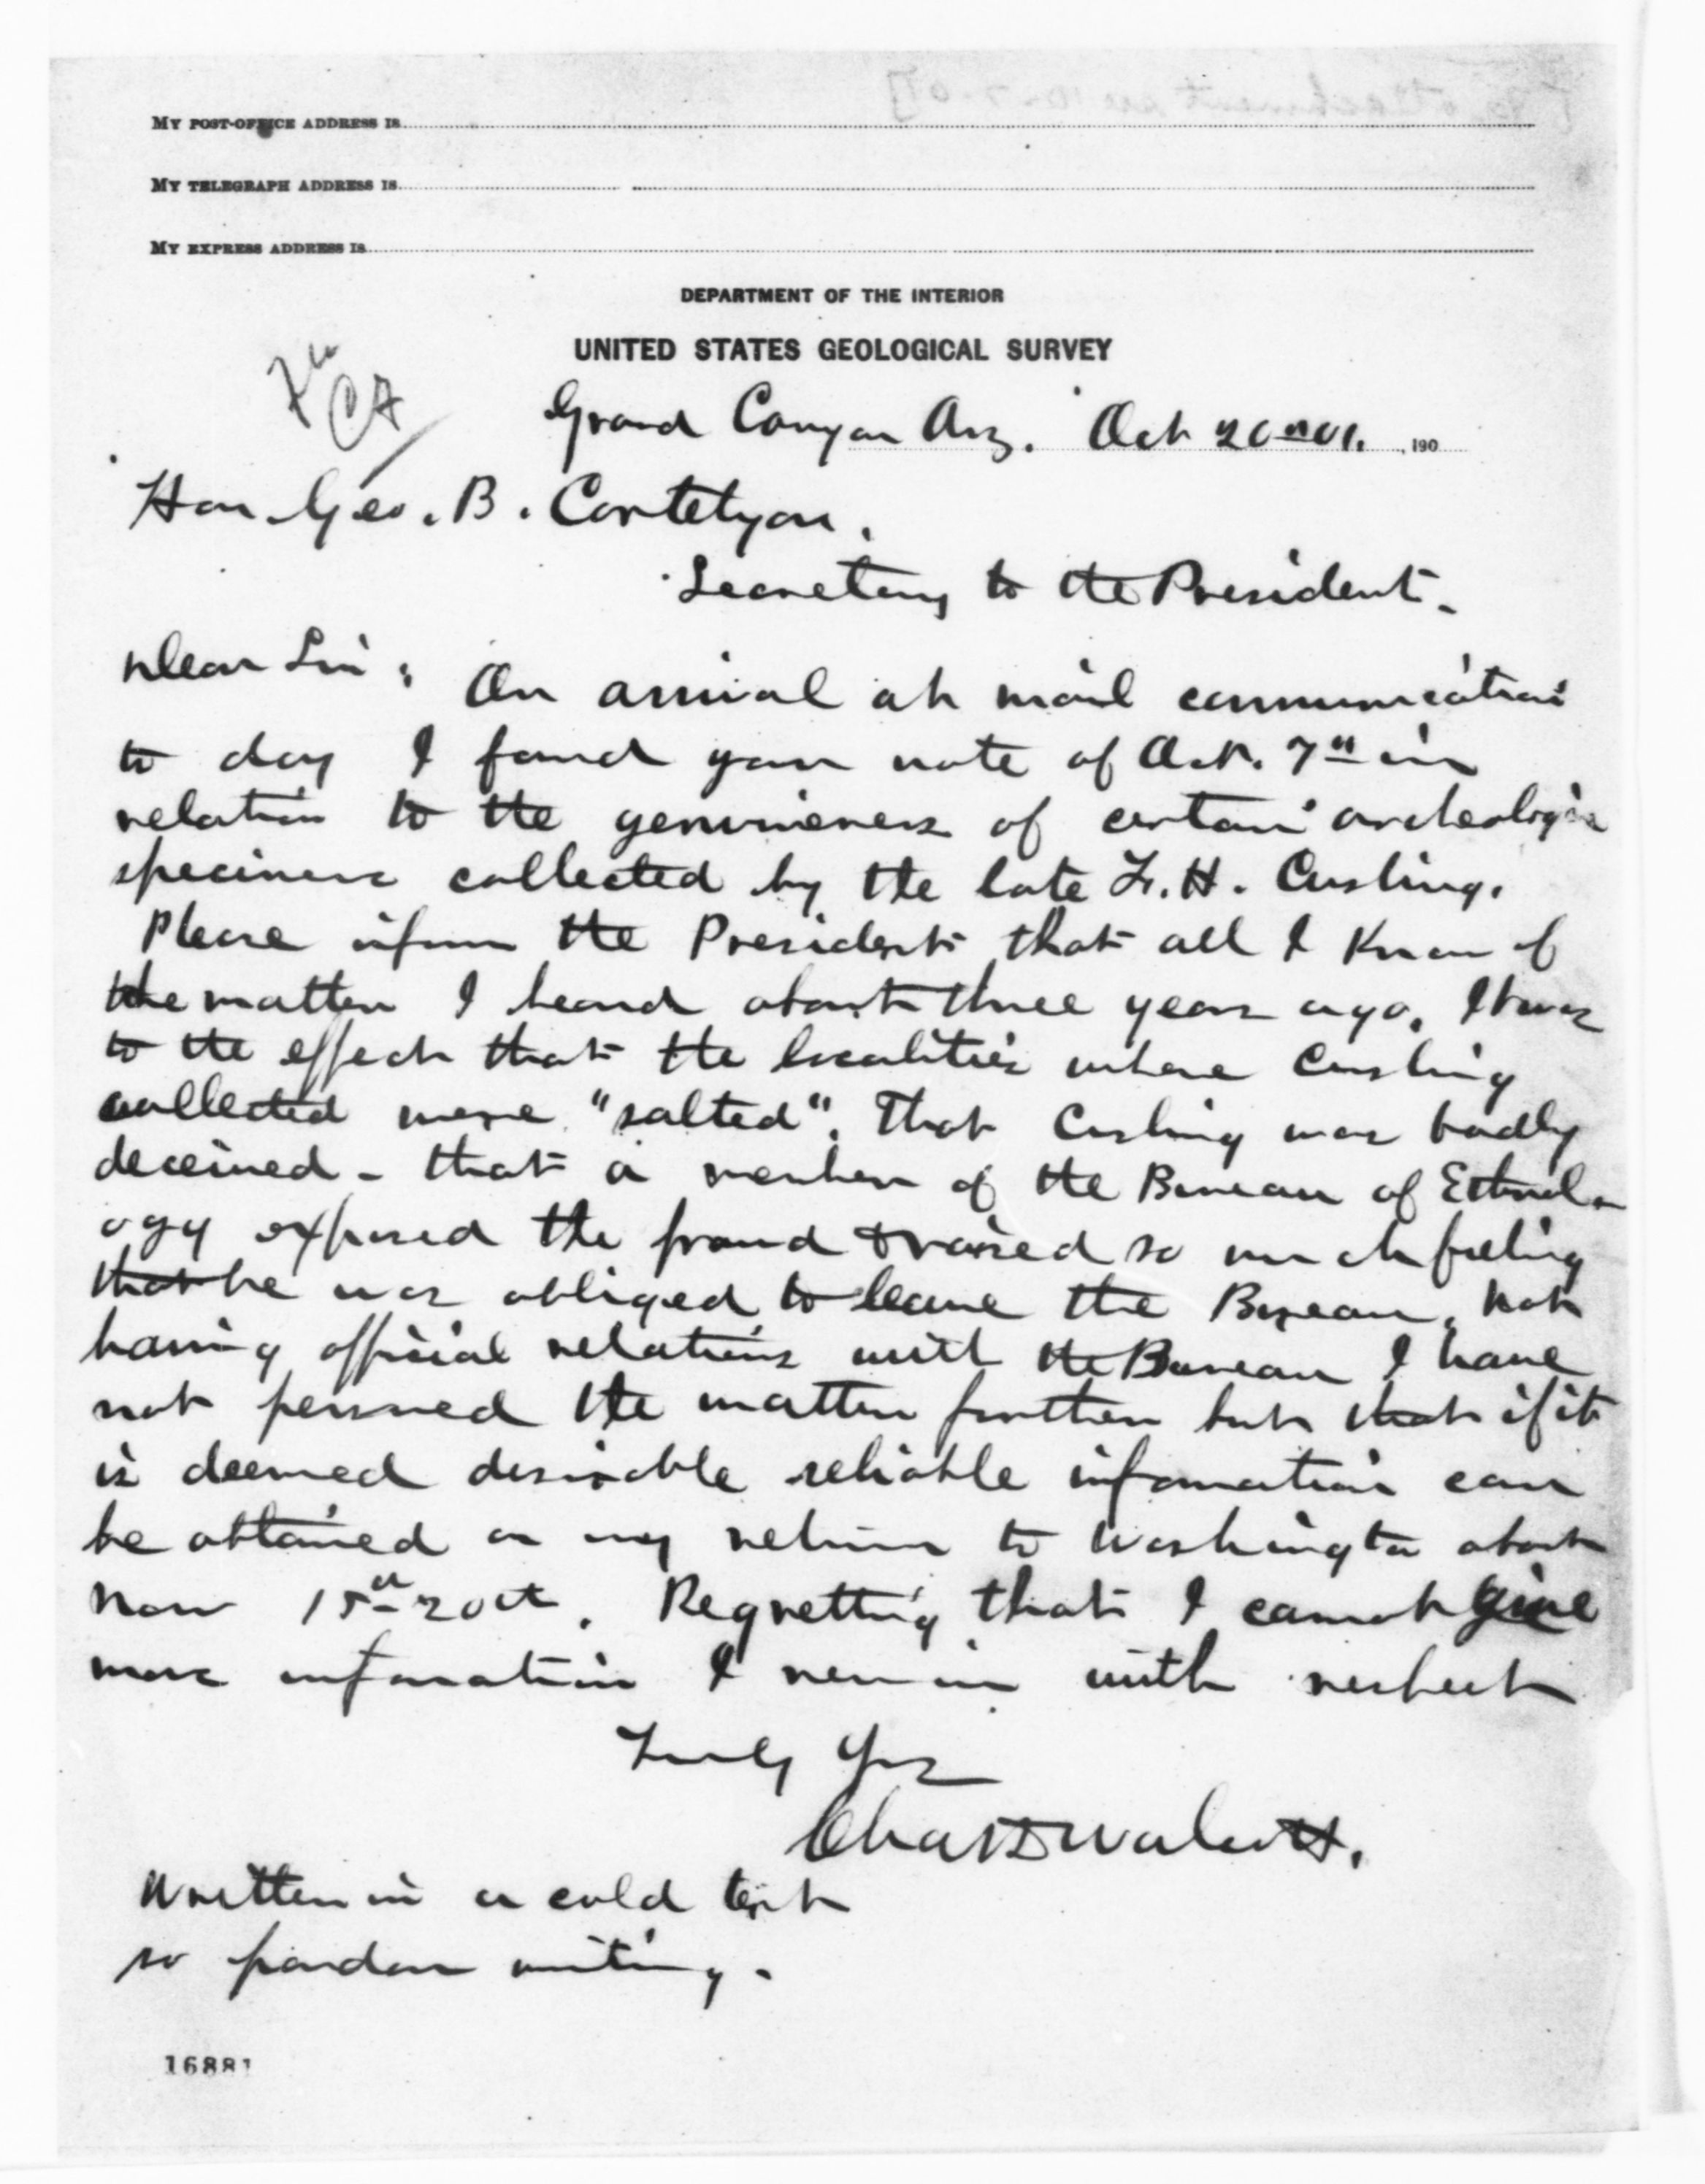 MY POST-OFFICE ADDRESS IS
MY TELEGRAPH ADDRESS IS
MY EXPRESS ADDRESS IS
DEPARTMENT OF THE INTERIOR
UNITED STATES GEOLOGICAL SURVEY
Grand Canyon Ariz. Oct 20th 01. , 190
Hon Geo. B. Cortelyou.
Secretary to the President.
Dear Sir: On arrival at mail communication
to day I found your note of Oct. 7th in
relation to the genuineness of certain archeologic
specimens collected by the late F. H. Cushing.
Please inform the President that all I know of
the matter I heard about three years ago. It was
to the effect that the localities where Cushing
collected were "salted". That Cushing was badly
deceived - that a member of the Bureau of Ethnol-
ogy exposed the fraud & raised so much feeling
that he was obliged to leave the Bureau. Not
having official relations with the Bureau I have
not pursued the matter further but that if it
is deemed desirable reliable information can
be obtained on my return to Washington about
Nov 15th-20th. Regretting that I cannot give
more information I remain with respect
Truly Yrs
Chas D Walcott.
Written in a cold tent
so pardon writing.
16881